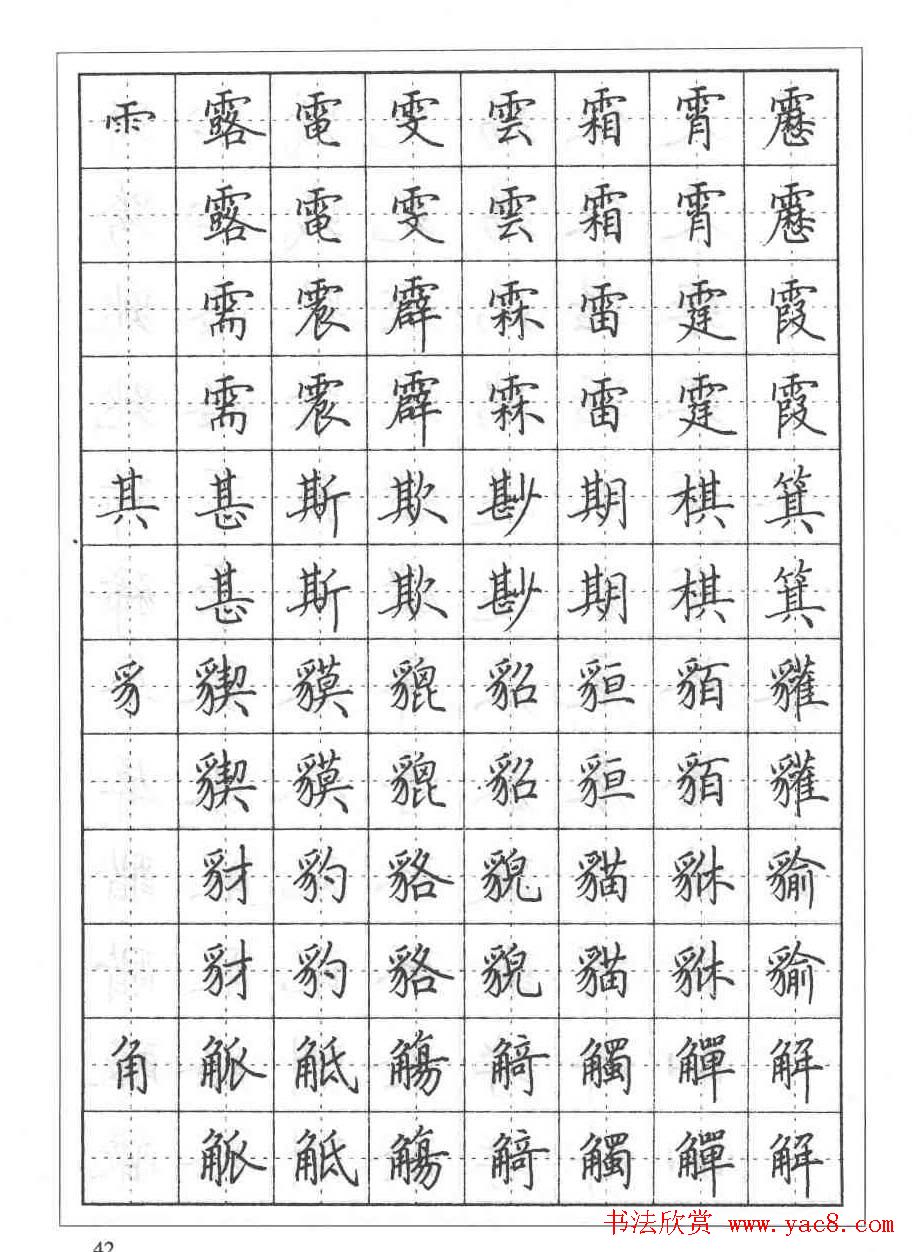 雨露電雯雲霜霄靂
露電雯雲霜霄靂
需震霹霖雷霆霞
需震霹霖雷霆霞
其甚斯欺尠期棋箕
甚斯欺尠期棋箕
豸䝟貘貔貂貆貊貛
䝟貘貔貂貆貊貛
豺豹貉貌貓貅貐
豺豹貉貌貓貅貐
角觝觴觭觸觶解
觝觴觭觸觶解
书法欣赏 www.yac8.com
42